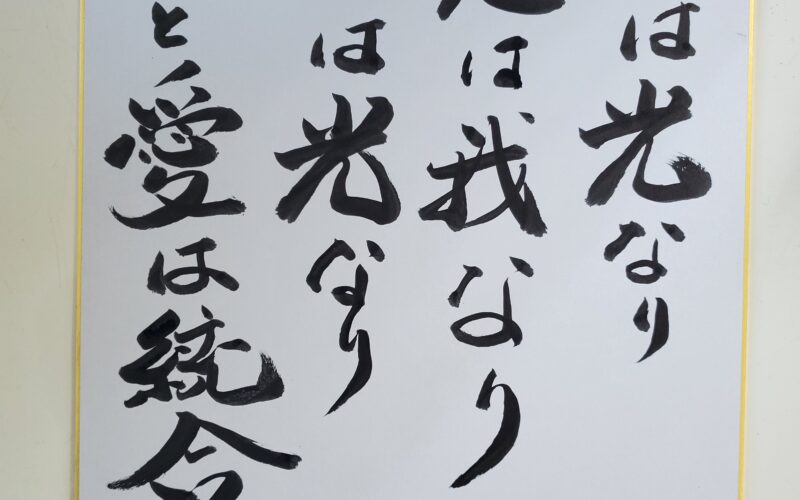 は光なり
は我なり
は光なり
と愛は統合